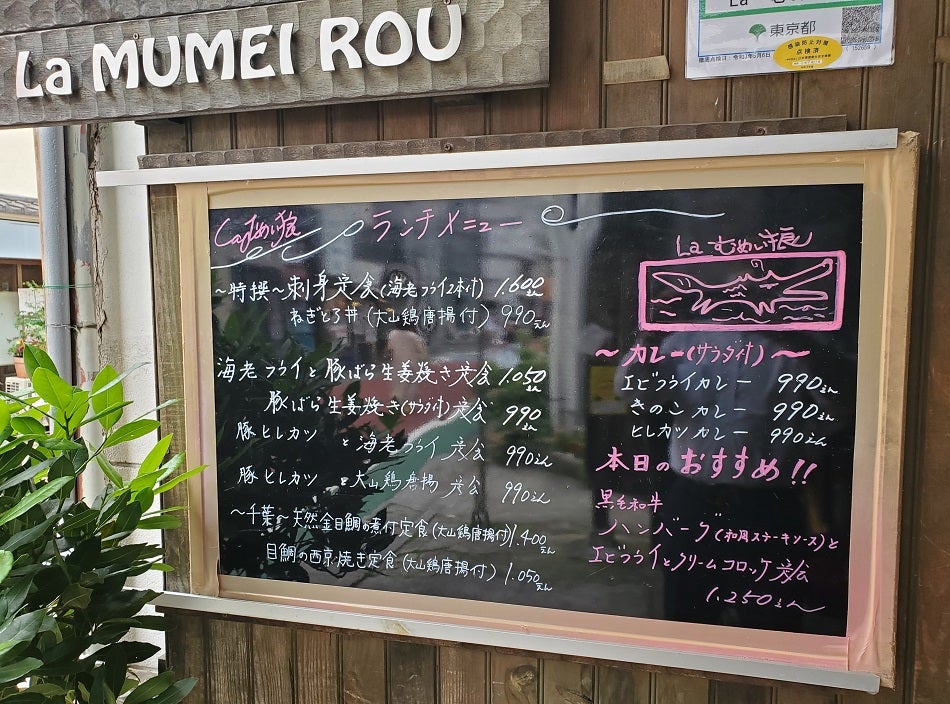 La MUMEI ROU
La
東京都
感染防止対策
点検済
ランチメニュー
～特撰～刺身定食(海老フライ2本付) 1.600えん
ねぎとろ丼(大山鶏唐揚付) 990えん
海老フライと豚ばら生姜焼き定食 1.050えん
豚ばら生姜焼き(サラダ付)定食 990えん
豚ヒレカツ と海老フライ定食 990えん
豚ヒレカツ と大山鶏唐揚定食 990えん
～千葉～天然金目鯛の煮付定食(大山鶏唐揚付) 1.400えん
目鯛の西京焼き定食(大山鶏唐揚付) 1.050えん
La むめい狼
～カレー(サラダ付)～
エビフライカレー 990えん
きのこカレー 990えん
ヒレカツカレー 990えん
本日のおすすめ!!
黒毛和牛
ハンバーグ(和風ステーキソース)と
エビフライとクリームコロッケ定食
1.250えん